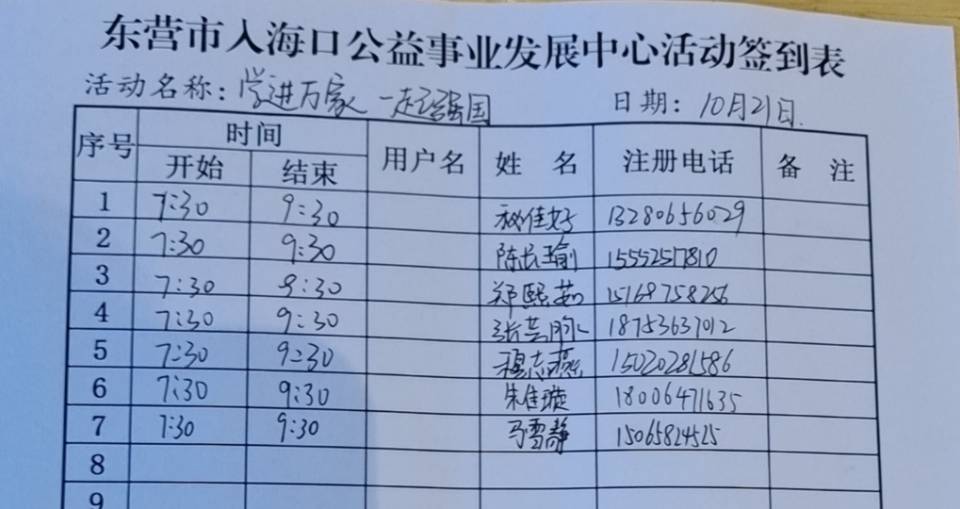 东营市入海口公益事业发展中心活动签到表
活动名称：学进万家 一起强国 日期：10月21日.
序号 时间 用户名 姓 名 注册电话 备 注
开始 结束
1 7:30 9:30 13280656029
2 7:30 9:30 陈长瑜 15552577810
3 7:30 9:30 郑熙茹 15168758256
4 7:30 9:30 18753637012
5 7:30 9:30 穆志燕 15020281586
6 7:30 9:30 朱佳璇 18006471635
7 7:30 9:30 马雪静 15065824525
8
9